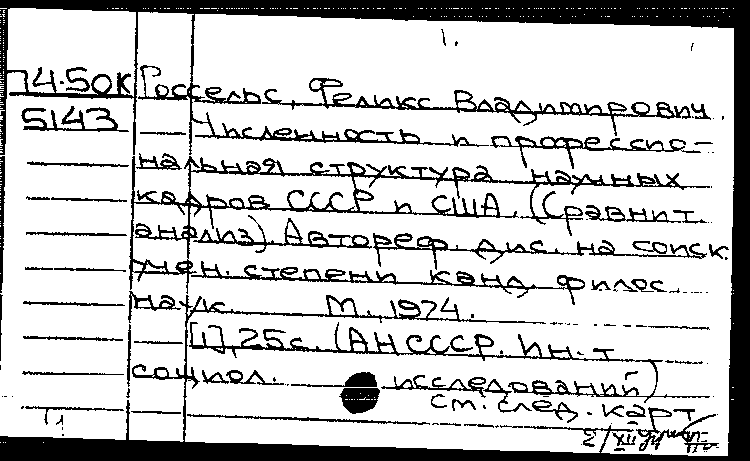 1.
74-50К Россельс, Феликс Владимирович.
5143 Численность и профессио-
нальная структура научных
кадров СССР и США. (Сравнит.
анализ). Автореф. дис. на соиск.
учен. степени канд. филос.
наук. М., 1974.
[1], 25с. (АН СССР. Ин-т
социол. исследований)
см. след. карт